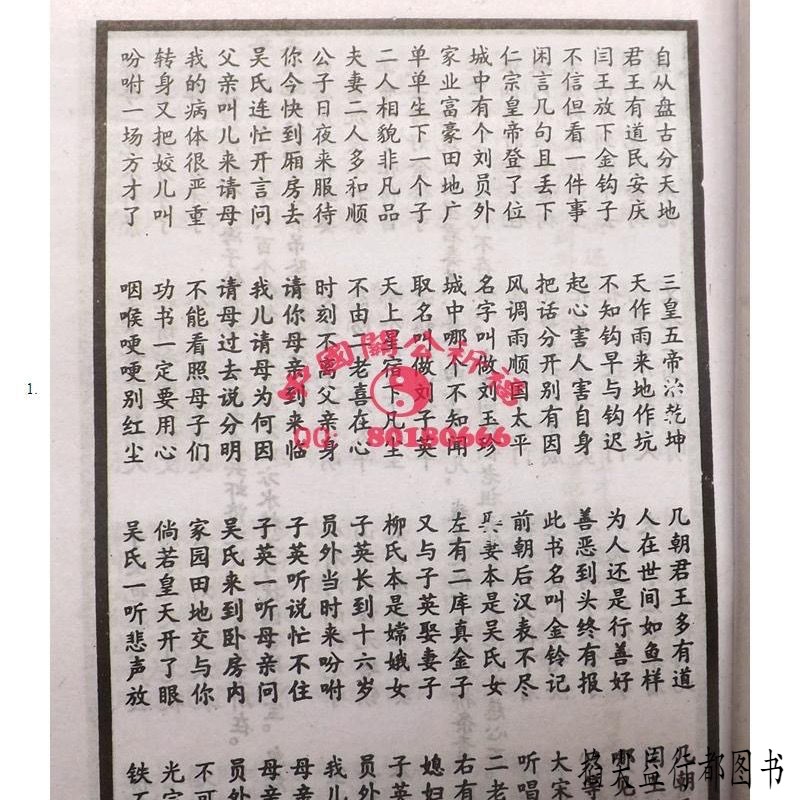 自从盘古分天地 三皇五帝治乾坤 几朝君王多有道 几朝
君王有道民安庆 天作雨来地作坑 人在世间如鱼样
闫王放下金钩子 不知钩早与钩迟 为人还是行善好
不信但看一件事 起心害人害自身 善恶到头终有报
闲言几句且丢下 把话分开别有因 此书名叫金铃记 大宋
仁宗皇帝登了位 风调雨顺国太平 前朝后汉表不尽 听唱
城中有个刘员外 名字叫做刘玉珍 妻本是吴氏女 二老
家业富豪田地广 城中哪个不知闻 左有二库真金子 右有
单单生下一个子 取名叫做刘子英 又与子英娶妻子 媳妇
二人相貌非凡品 天上星宿下凡生 柳氏本是嫦娥女 子英
夫妻二人多和顺 不由二老喜在心 子英长到十六岁 员外
公子日夜来服待 时刻不离父亲身 员外当时来吩咐 我儿
你今快到厢房去 请你母亲到来临 子英听说忙不住 母亲
吴氏连忙开言问 我儿请母为何因 子英一听母亲问 母亲
父亲叫儿来请母 请母过去说分明 吴氏来到卧房内 员外
我的病体很严重 不能看照母子们 家园田地交与你 不可
转身又把姣儿叫 功书一定要用心 倘若皇天开了眼 光宗
吩咐一场方才了 咽喉哽哽别红尘 吴氏一听悲声放 铁
中國關公祈福
QQ: 80180666
1.
都图书